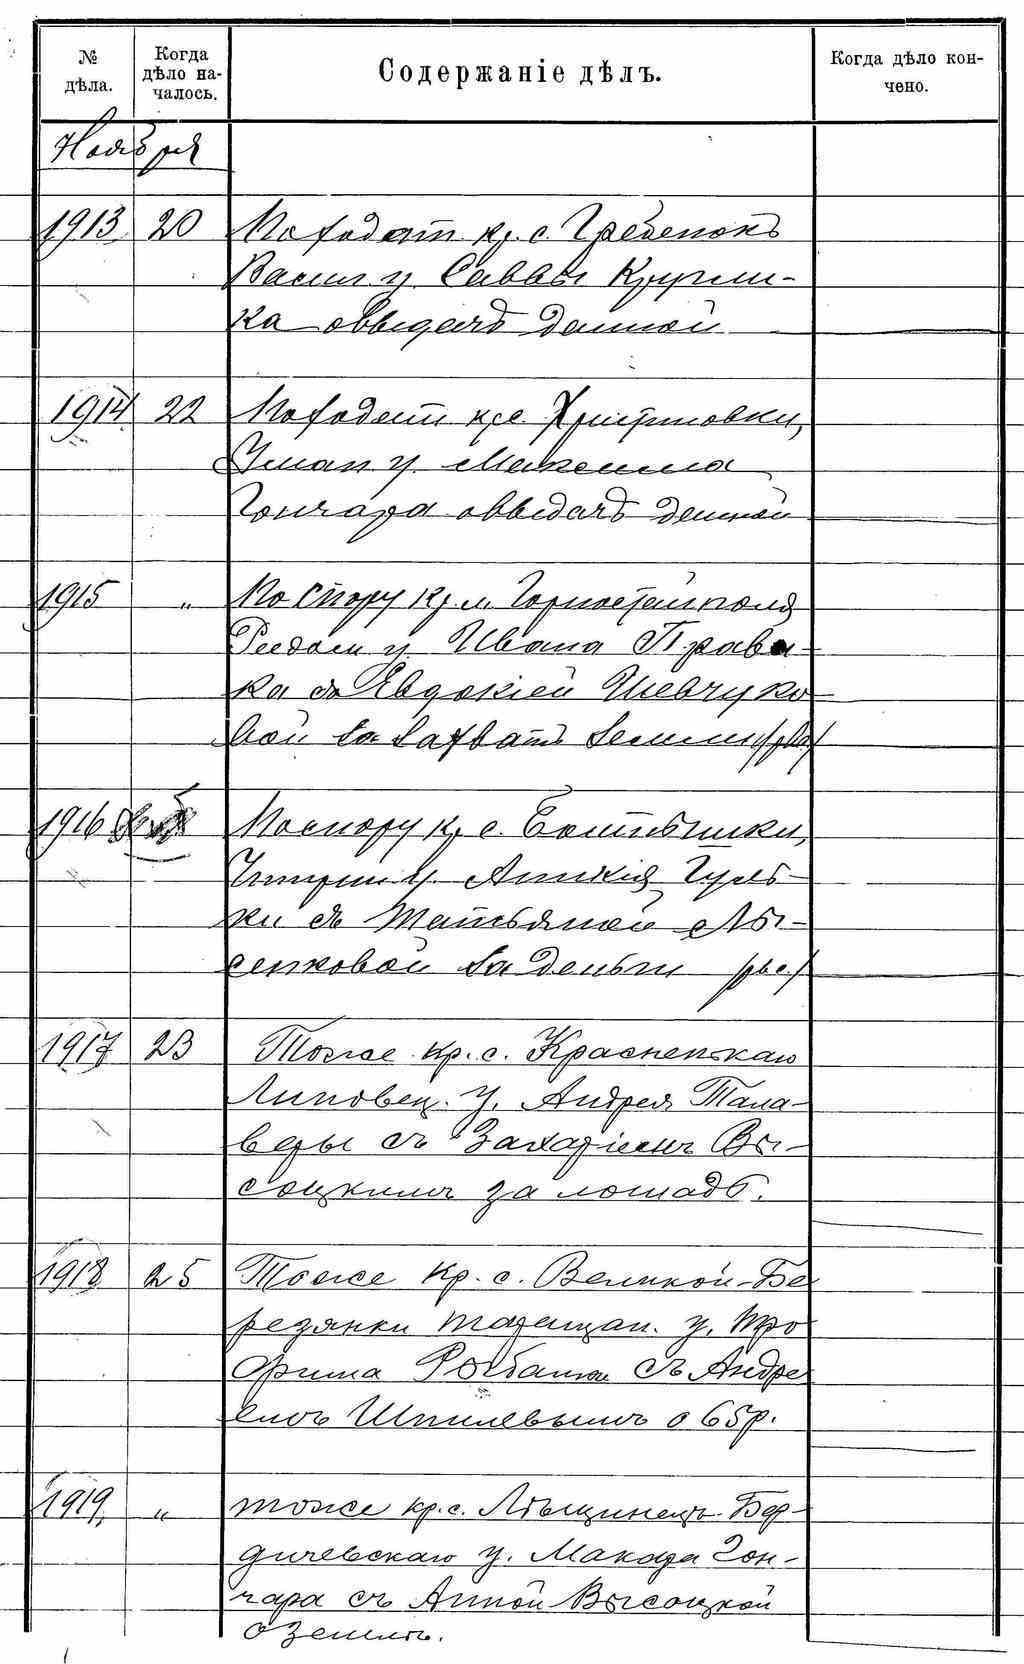 № дѣла.
Когда дѣло началось.
Содержаніе дѣлъ.
Когда дѣло кончено.
Ноября
1913 20 По ходат. кр. с. Гребенокъ
Васил. у. Саввы Кругли-
ка о выдачѣ данной
1914 22 По ходат. кр. с. Христиновки,
Уман. у. Максима
Гончара о выдачѣ данной
1915 „ По спору кр. м. Горностайполя
Радом. у. Ивана Права-
ка съ Евдокіей Шевчуко-
вой за захватъ земли
1916 По спору кр. с.
Чигири. у. Гуль-
ки съ Татьяной Лы-
сенковой за деньги
1917 23 Тоже кр. с. Красненькаго
Липовец. у. Андрея Тала-
веры съ Захаріемъ Вы-
соцкимъ за лошадь.
1918 25 Тоже кр. с. Великой-Бе
резянки Таращан. у. Тро
фима Рыбалки съ Андре
емъ Шпилевымъ о 65 р.
1919. „ тоже кр. с. Лѣщинецъ Бер-
дичевскаго у. Макара Гон-
чара съ Анной Высоцкой
о землѣ.